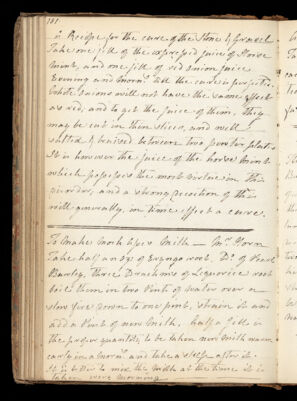 181
a Receipt for the cure of the Stone & Gravel
Take one jill of the expressed juice of Horse
mint, and one jill of red onion juice
Evening and Morng. till the cure is perfected.
White Onions will not have the same effect
as red, and to get the juice of them, They
may be cut in thin slices, and well
salted & bruised between two pewter plates
It is however the juice of the horse mint
which possesses the most virtue in this
disorder, and a strong decoction of this
will generally, in time effect a cure.
To Make Mock Asses Milk — Mrs.
Take half an oz. of Eryngo root, Do. of Pearl
Barley, three Drachms of Liquorice root
boil them in two Pints of water over a
slow fire down to one pint, strain it and
add a Pint of new Milk, half a Jill is
the proper quantity, to be taken new Milk warm
early in a Morng. and take a sleep after it.
It is better to mix the Milk at the time it is
taken every morning